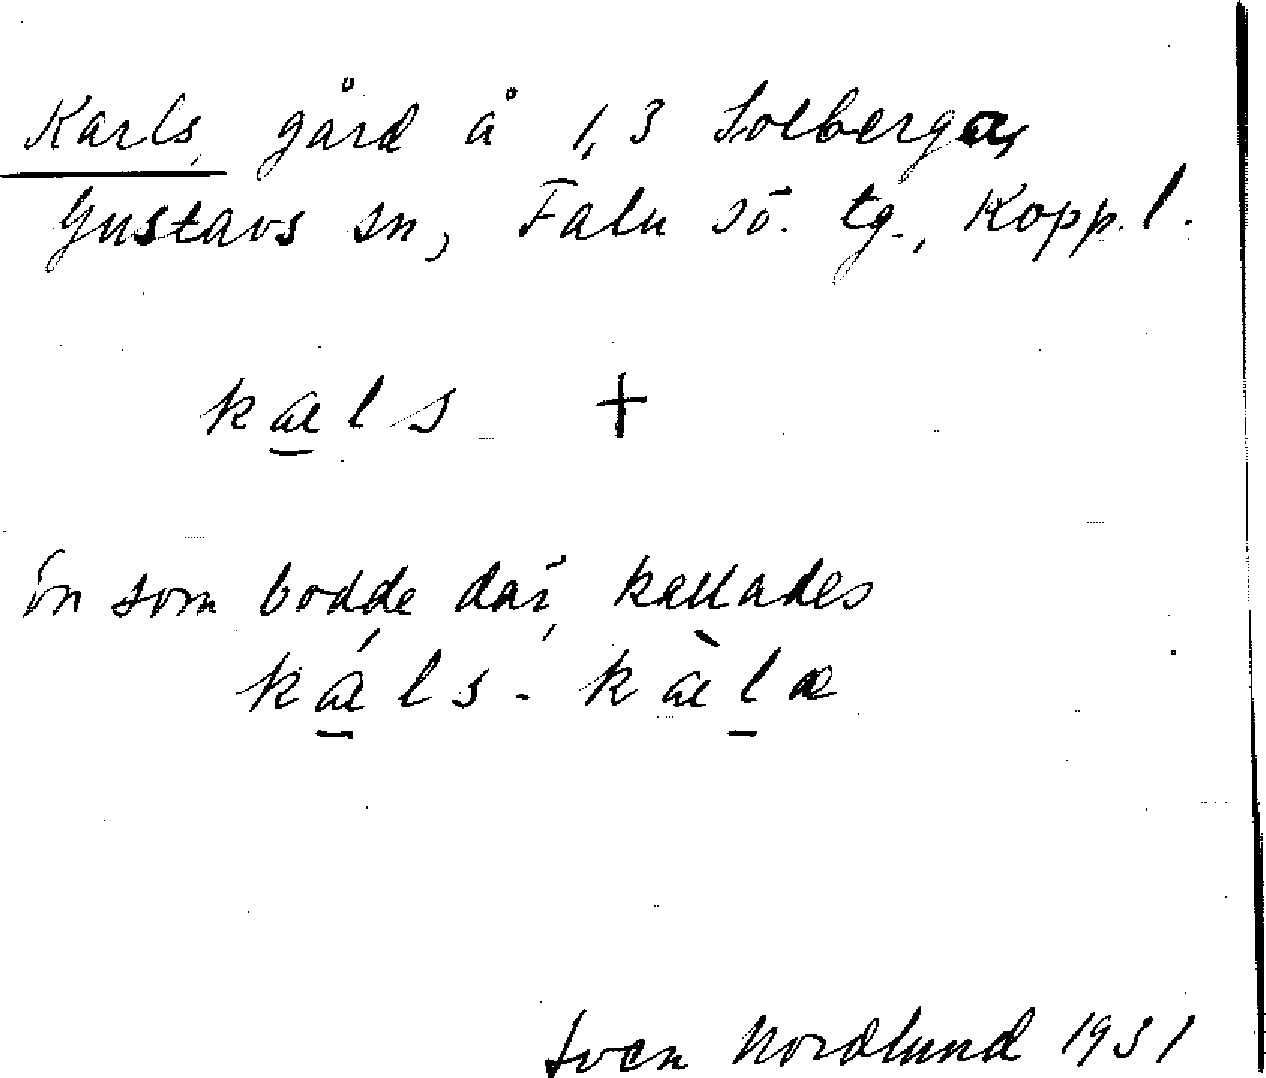 Karls, gård å 1,3 Solberga,
Gustavs sn, Falu sö. tg., Kopp. l.
kals +
ön som bodde där, kallades
káls-kàlæ
Sven Nordlund 1931